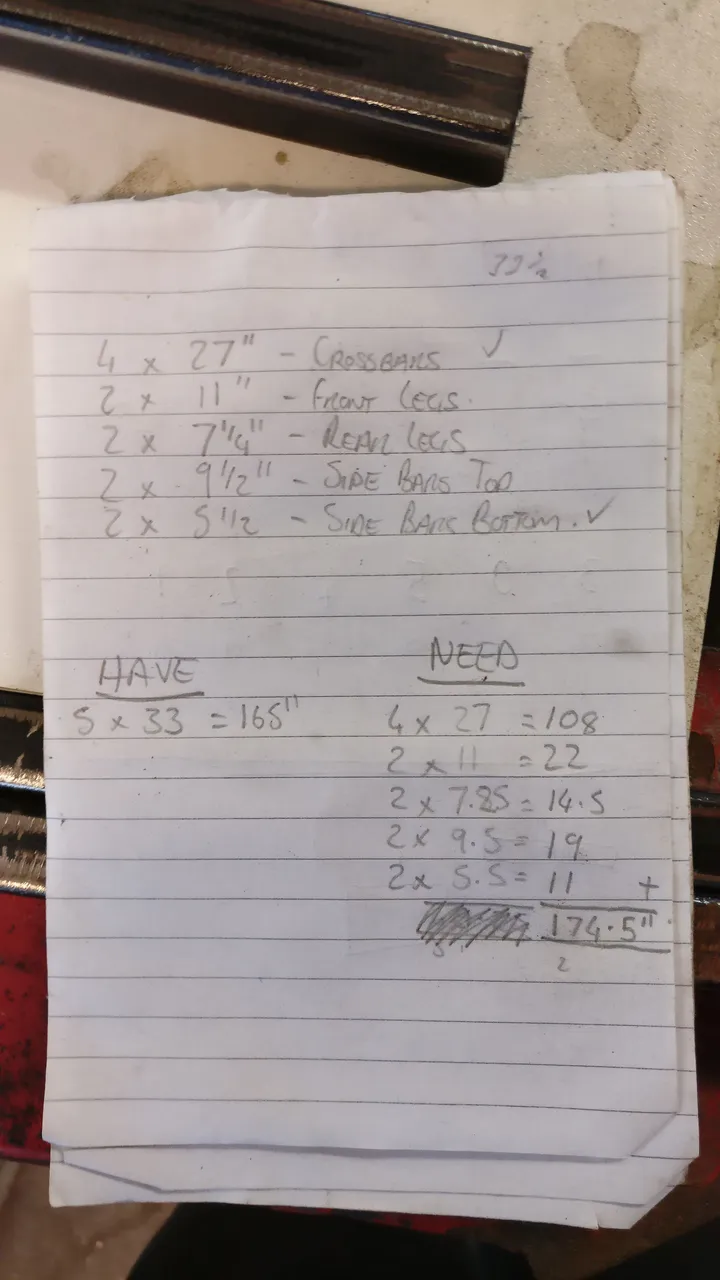 32½
4 x 27" - CROSSBARS ✓
2 x 11" - FRONT LEGS.
2 x 7¼" - REAR LEGS
2 x 9½" - SIDE BARS TOP
2 x 5½ - SIDE BARS BOTTOM. ✓
HAVE
5 x 33 = 165"
NEED
4 x 27 = 108
2 x 11 = 22
2 x 7.25 = 14.5
2 x 9.5 = 19
2 x 5.5 = 11 +
174.5"
2